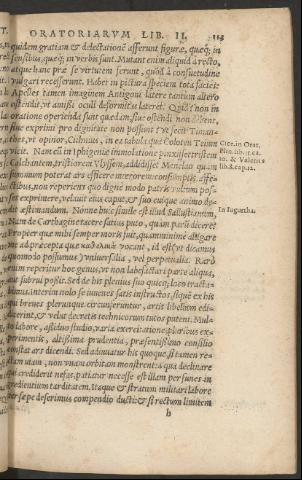 T.
ORATORIARVM LIB. II. 113
quidem gratiam & delectationē afferunt figuræ, quæq; in
sensibus, quæq; in verbis sunt. Mutant enim aliquid a recto,
atque hanc præ se virtutem ferunt, quòd à consuetudine
vulgari recesserunt. Habet in pictura speciem tota facies:
Apelles tamen imaginem Antigoni latere tantum altero
ostendit, vt amissi oculi deformitas lateret. Quid? non in
oratione operienda sunt quædam, siue ostendi non debent,
siue exprimi pro dignitate non possunt? vt fecit Timan-
thes, vt opinor, Cithnius, in ea tabula qua Coloten Teium
vicit. Nam cùm in Iphigeniæ immolatione pinxisset tristem
Calchantem, tristiorem Vlyssem, addidisset Menelao quem
summum poterat ars efficere mœrorem: consumptis affe-
ctibus, non reperiens quo digne modo patris vultum pos-
set exprimere, velauit eius caput, & suo cuique animo de-
dit æstimandum. Nonne huic simile est illud Sallustianum,
Nam de Carthagine tacere satius puto, quàm parùm dicere?
Propter quæ mihi semper moris fuit, quàm minimè alligare
me ad præcepta quæ vocant, id est (vt dicamus
quomodo possumus) vniuersalia, vel perpetualia. Rarò
enim reperitur hoc genus, vt non labefactari parte aliqua,
aut subrui possit. Sed de his plenius suo quicq; loco tracta-
bimus. Interim nolo se iuuenes satis instructos, si quē ex his
qui breues plerunque circunferuntur, artis libellum edi-
dicerint, & velut decretis technicorum tutos putent. Mul-
to labore, assiduo studio, varia exercitatione, pluribus ex-
perimentis, altissima prudentia, præsentissimo consilio
constat ars dicendi. Sed adiuuatur his quoque, si tamen re-
ctam viam, non vnam orbitam monstrent: qua declinare
qui crediderit nefas, patiatur necesse est illam per funes in-
gredientium tarditatem. Itaque & stratum militari labore
iter sæpe deserimus compendio ducti: & si rectum limitem
h
Cice. in Orat.
Plin. lib. 35. ca.
10. & Valerius
lib. 8. cap. 12.
In Iugurtha.